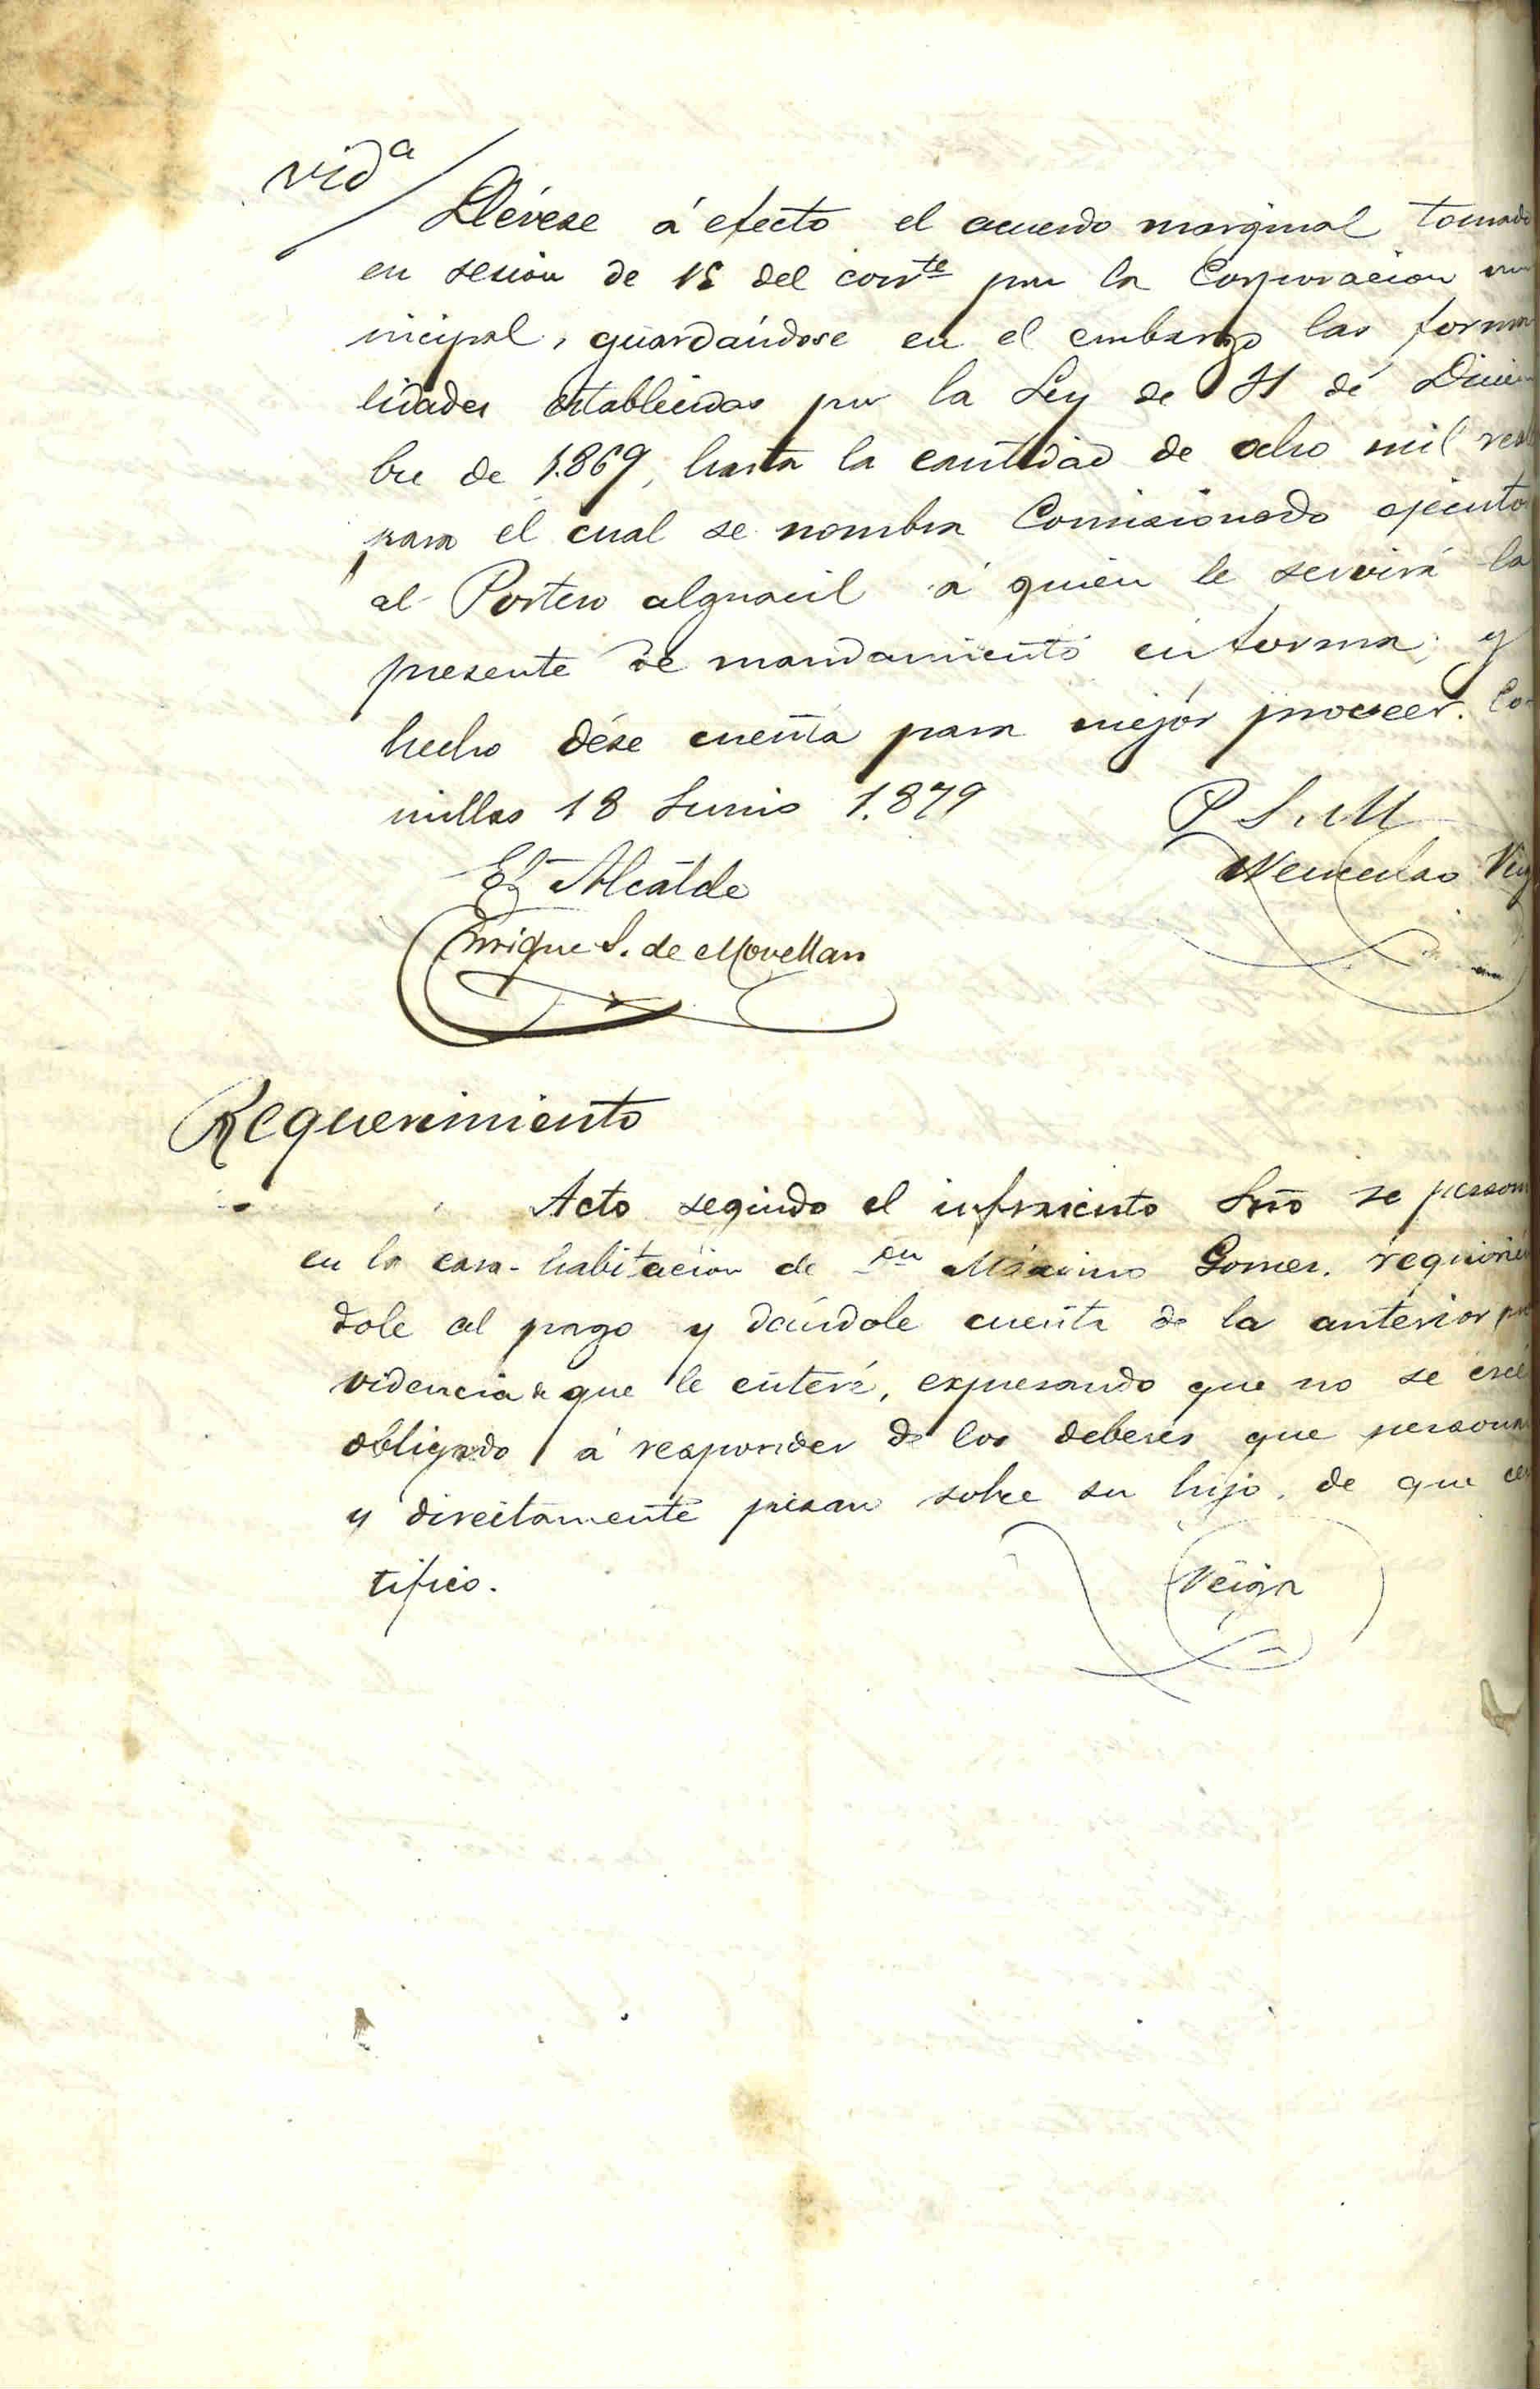 vid^a
Llévese á efecto el acuerdo marginal tomado
en sesion de 15 del cor^te por la Corporacion mu
nicipal, guardándose en el embargo las forma
lidades establecidas por la Ley de de Diciem
bre de 1.869, hasta la cantidad de ocho mil
para el cual se nombra Comisionado ejecutor
al Portero alguacil á quien le servirá la
presente de mandamiento en forma; y
hecho dése cuenta para mejór proveer. Co-
millas 18 Junio 1.879
P S. M
El Alcalde
Wenceslao
Enrique S. de Movellan
Requerimiento
Acto seguido el infrascrito Srio se person
en la casa-habitacion de Dn Máximo Gomez. requirién
dole al pago y dándole cuenta de la anterior pro
videncia de que le enteré, expresando que no se creé
obligado á responder de los deberes que personal
y directamente pesan sobre su hijo. de que cer
tifico.
Veiga